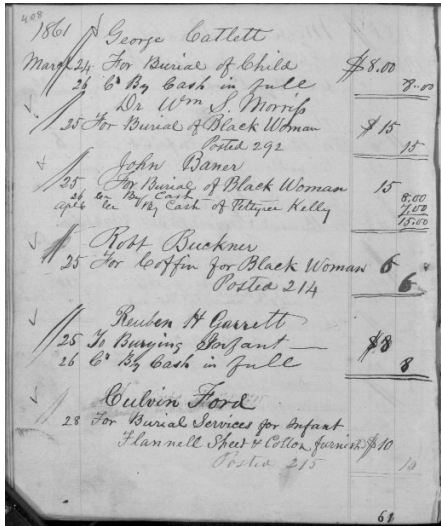 408
1861 George Catlett
March 24 For Burial of Child $8.00
26 Cr By Cash in full 8.00
Dr Wm S. Morriss
25 For Burial of Black Woman $15
Posted 292 15
John Baner
25 For Burial of Black Woman 15
26 Cr By Cash 8.00
Apl 6 Cr By Cash of Kelly 7.00
15.00
Robt Buckner
25 For Coffin for Black Woman 6
Posted 214 6
Reuben H Garrett
25 To Burying Infant $8
26 Cr By Cash in full 8
Culvin Ford
28 For Burial Services for Infant
Flannell Sheet & Cotton furnish $10
Posted 215 10
61